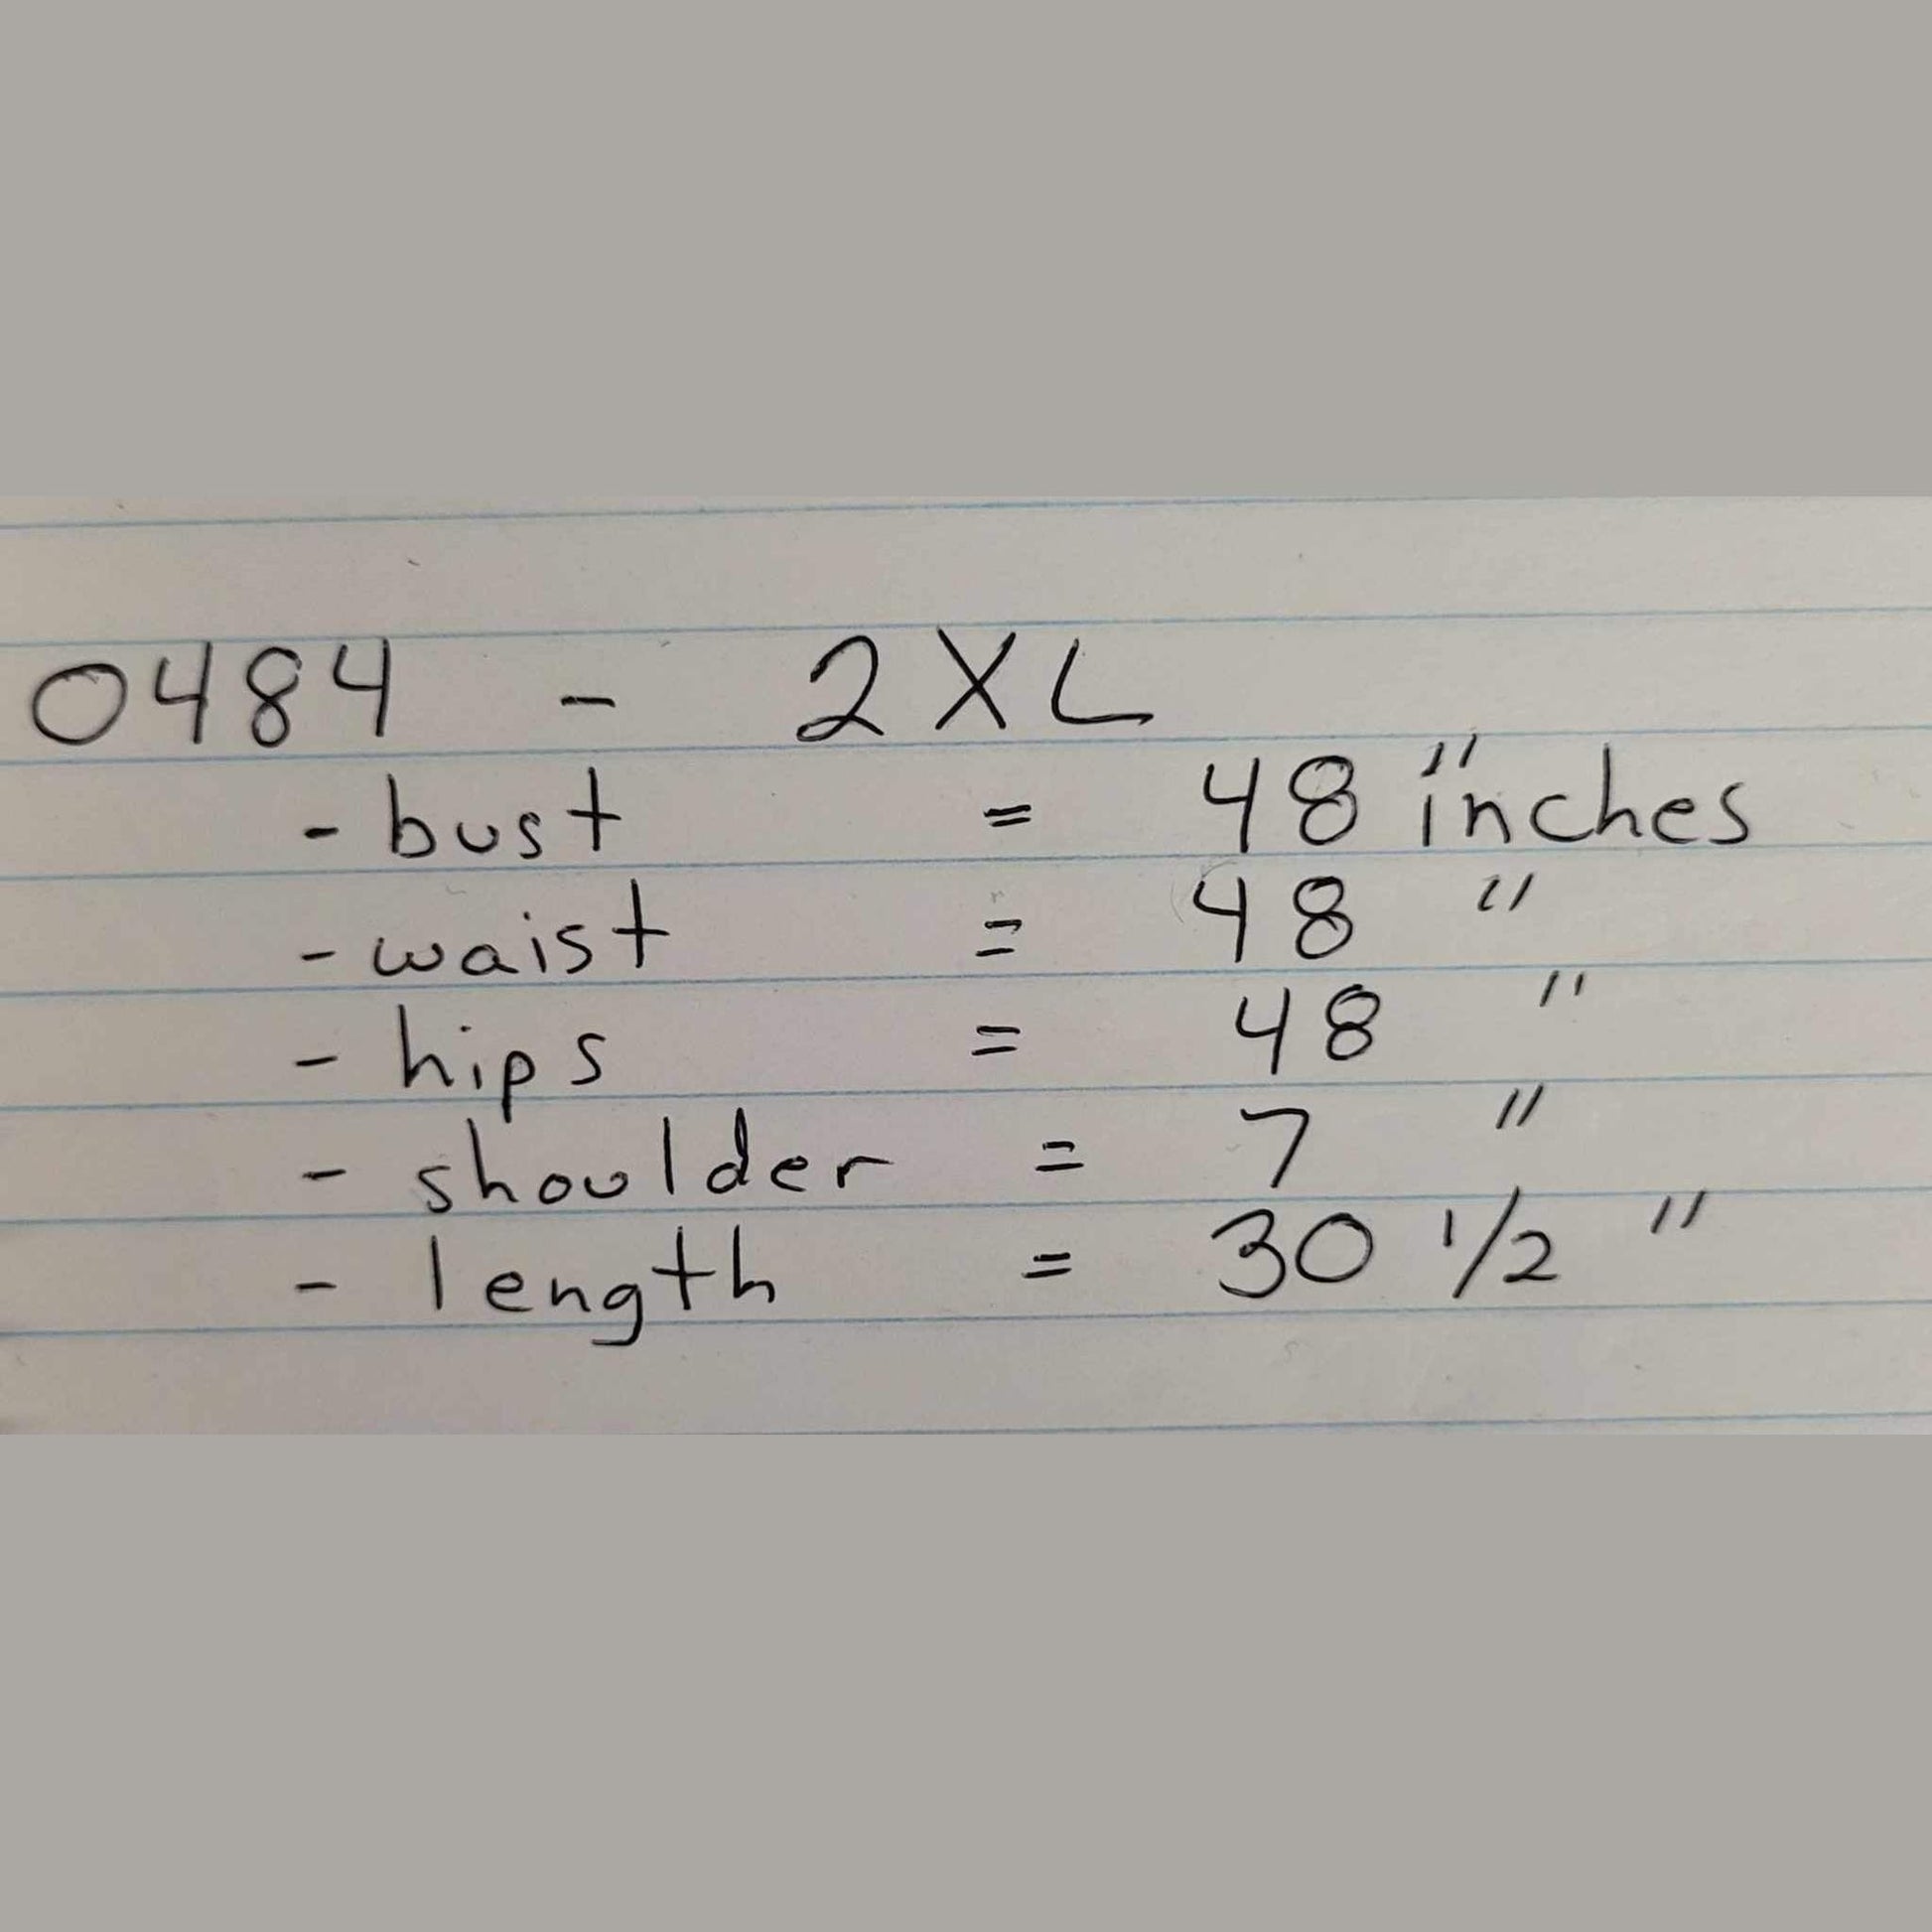 0484 - 2XL
- bust = 48 "inches
- waist = 48 "
- hips = 48 "
- shoulder = 7 "
- length = 30 1/2 "